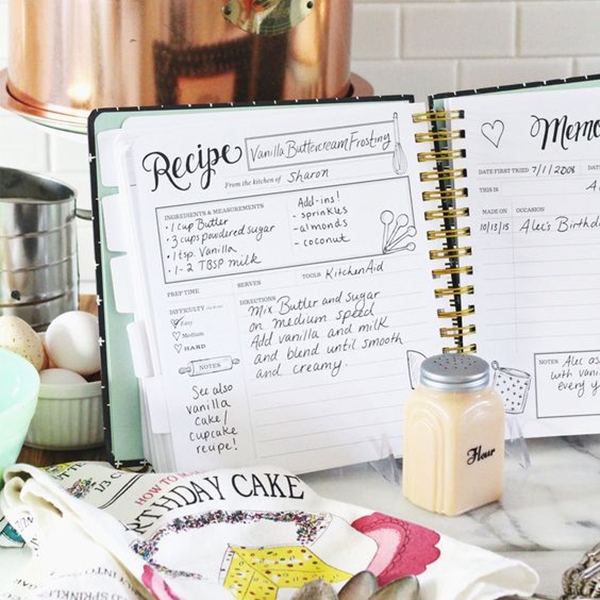 Recipe Vanilla Buttercream Frosting
From the kitchen of Sharon
INGREDIENTS & MEASUREMENTS
• 1 cup Butter
• 3 cups powdered sugar
• 1 tsp. Vanilla
• 1-2 TBSP milk
Add-ins!
- sprinkles
- almonds
- coconut
PREP TIME
SERVES
TOOLS KitchenAid
DIFFICULTY
Easy
Medium
HARD
DIRECTIONS
Mix Butter and sugar
on medium speed
Add vanilla and milk
and blend until smooth
and creamy.
NOTES
See also
vanilla
cake/
cupcake
recipe!
Memo
DATE FIRST TRIED 7/11/2008
DATE
THIS IS
A
MADE ON
OCCASION
10/13/15
Alec's Birthd
NOTES Alec as
with vani
every y
Flour
HOW TO
RTHDAY CAKE
1/3 C